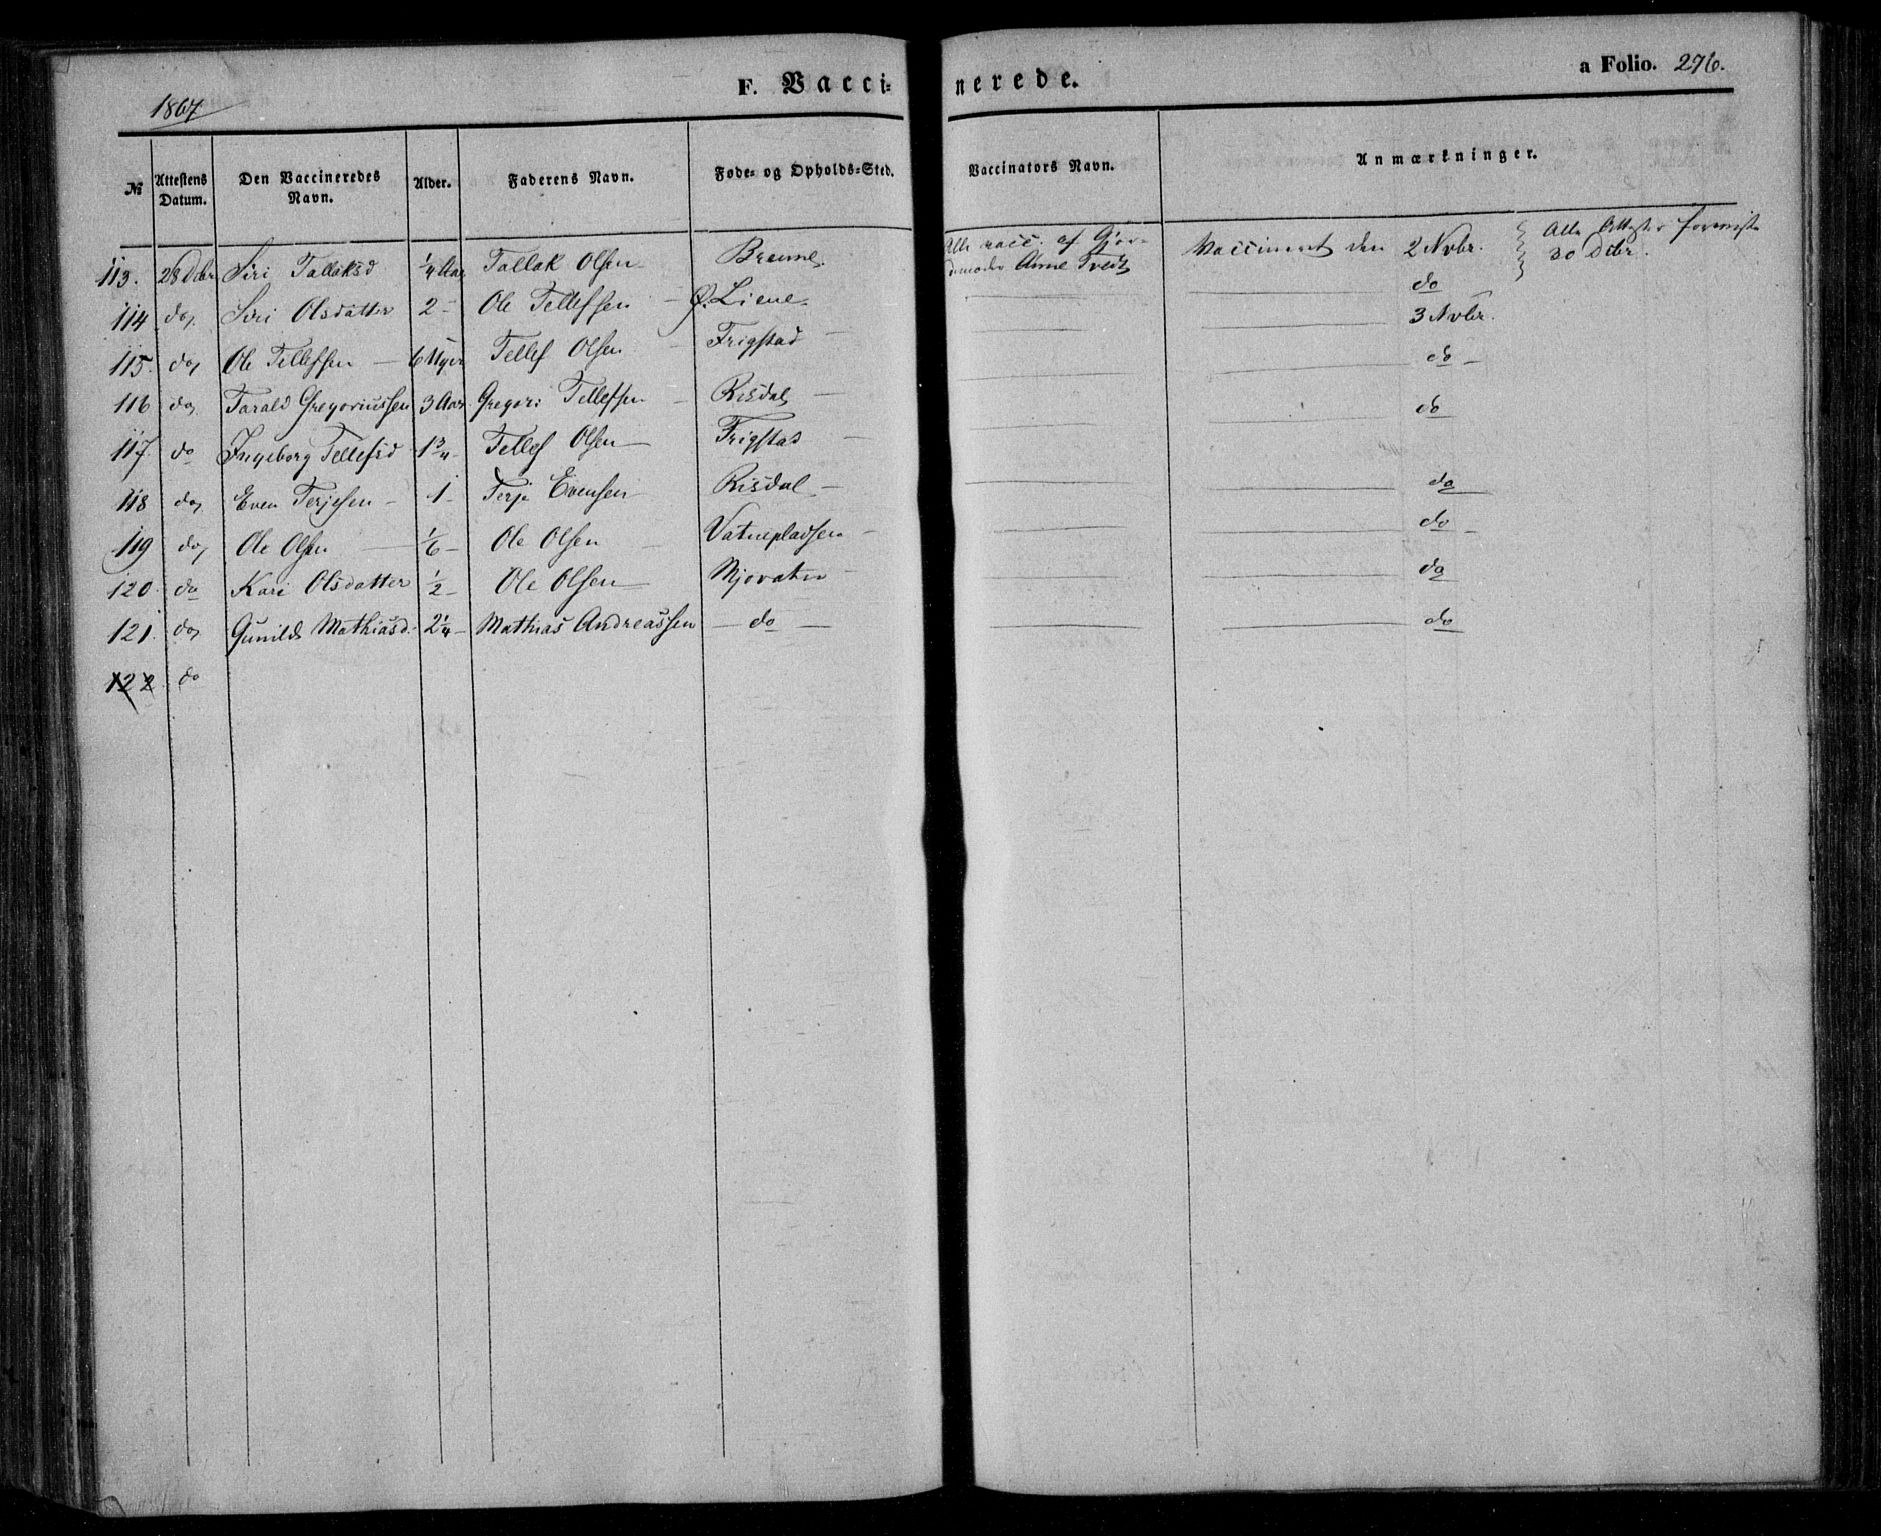 F. Vacci- nerede.
a Folio. 276.
1867
№ Attestens Datum. Den Vaccineredes Navn. Alder. Faderens Navn. Føde- og Opholds-Sted. Vaccinators Navn. Anmærkninger.
113. 28 Dcbr Siri Tallaksd 1/4 Aar Tallak Olsen Breune. Alle vacc. af Gjor- Vaccineret den 2 Nvbr. Alle Attester foreviste
demoder Anne Tveit 30 Dcbr.
114 do, Siri Olsdatter 2 - Ole Tellefsen - Ø. Liene - do
115. do, Ole Tellefsen - 6 Uger Tellef Olsen - Frigstad - 3 Nvbr.
116 do, Tarald Gregoriussen 3 Aar Gregori Tellefsen - Risdal - do -
117. do Ingeborg Tellefsd 1 3/4 - Tellef Olsen - Frigstad - do
118 do, Even Terjesen - 1 - Terje Evensen Risdal - do
119 do, Ole Olsen - 1/6 - Ole Olsen - Vatnepladsen - do -
120. do Kari Olsdatter 1/2 - Ole Olsen - Mjovatn - do
121. do, Gunild Mathiasd. 2 1/4 - Mathias Andreassen - do - do
122 do